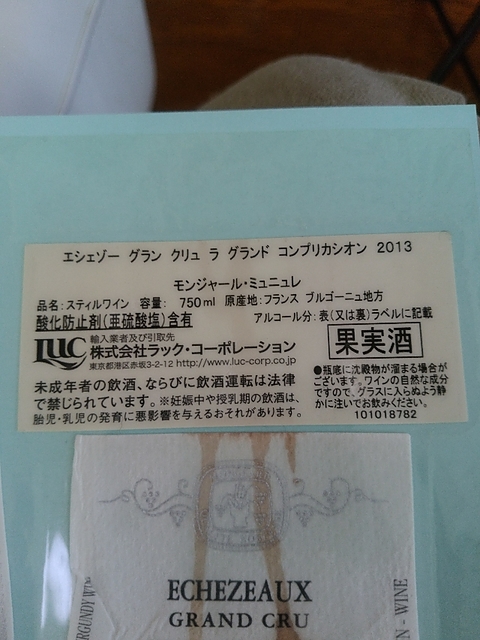 エシェゾー グラン クリュ ラ グランド コンプリカシオン 2013
モンジャール・ミュニュレ
品名:スティルワイン 容量: 750ml 原産地:フランス ブルゴーニュ地方
酸化防止剤(亜硫酸塩)含有
アルコール分:表(又は裏)ラベルに記載
LUC
輸入業者及び引取先
株式会社ラック・コーポレーション
東京都港区赤坂3-2-12 http://www.luc-corp.co.jp
果実酒
未成年者の飲酒、ならびに飲酒運転は法律
で禁じられています。※妊娠中や授乳期の飲酒は、
胎児・乳児の発育に悪影響を与えるおそれがあります。
●瓶底に沈殿物が溜まる場合が
ございます。ワインの自然な成分
ですので、グラスに入らぬよう静
かに注いでお飲みください。
101018782
ECHEZEAUX
GRAND CRU
WINE